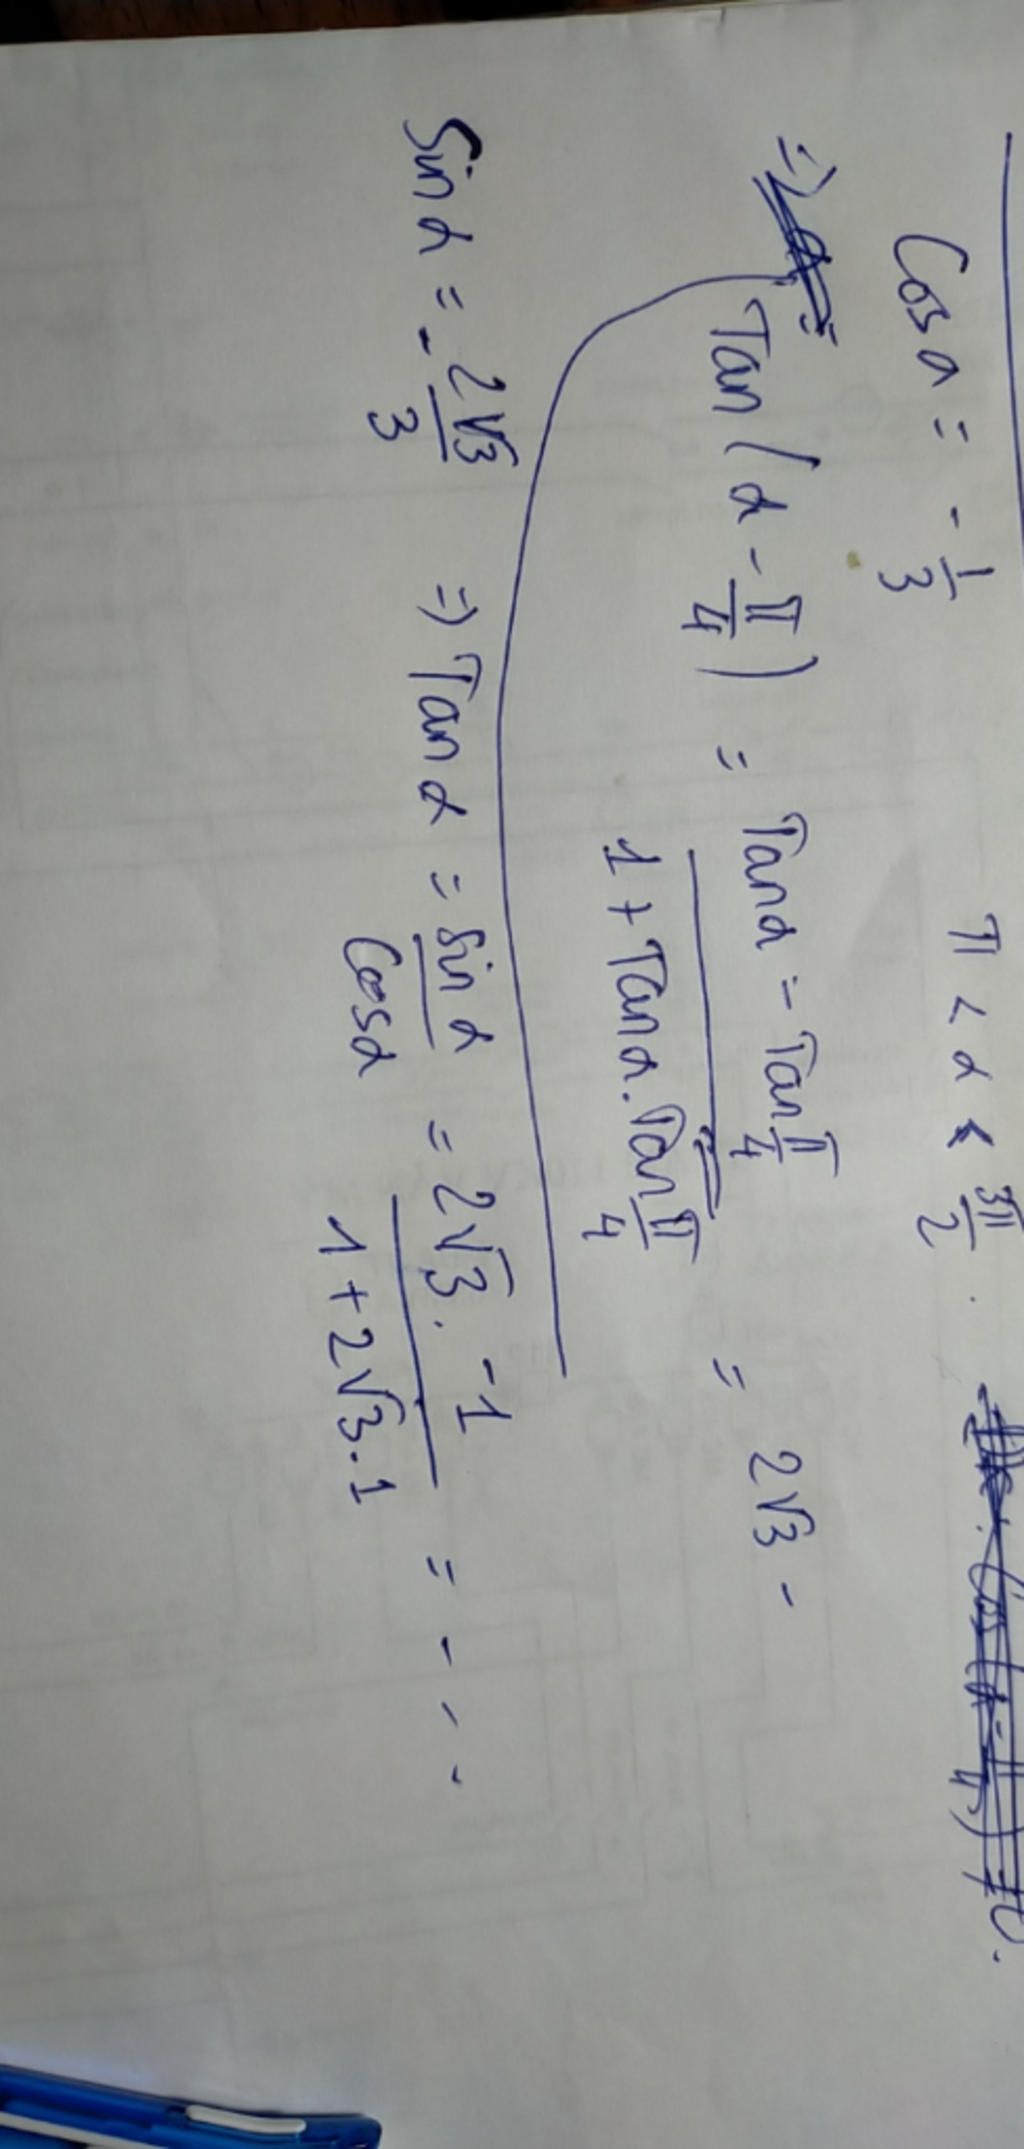 Cos α = - 1/3 π < α < 3π/2 .
=> Tan(α - π/4) = (Tanα - Tan π/4)/(1 + Tanα. Tan π/4) = 2√3 -
Sin α = - 2√3/3 => Tan α = Sin α/Cosα = (2√3. -1)/(1 + 2√3.1) = - - -